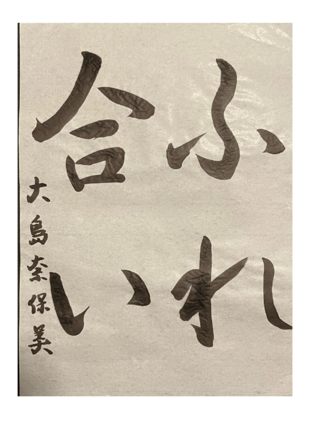 ふれ
合い
大島奈保美